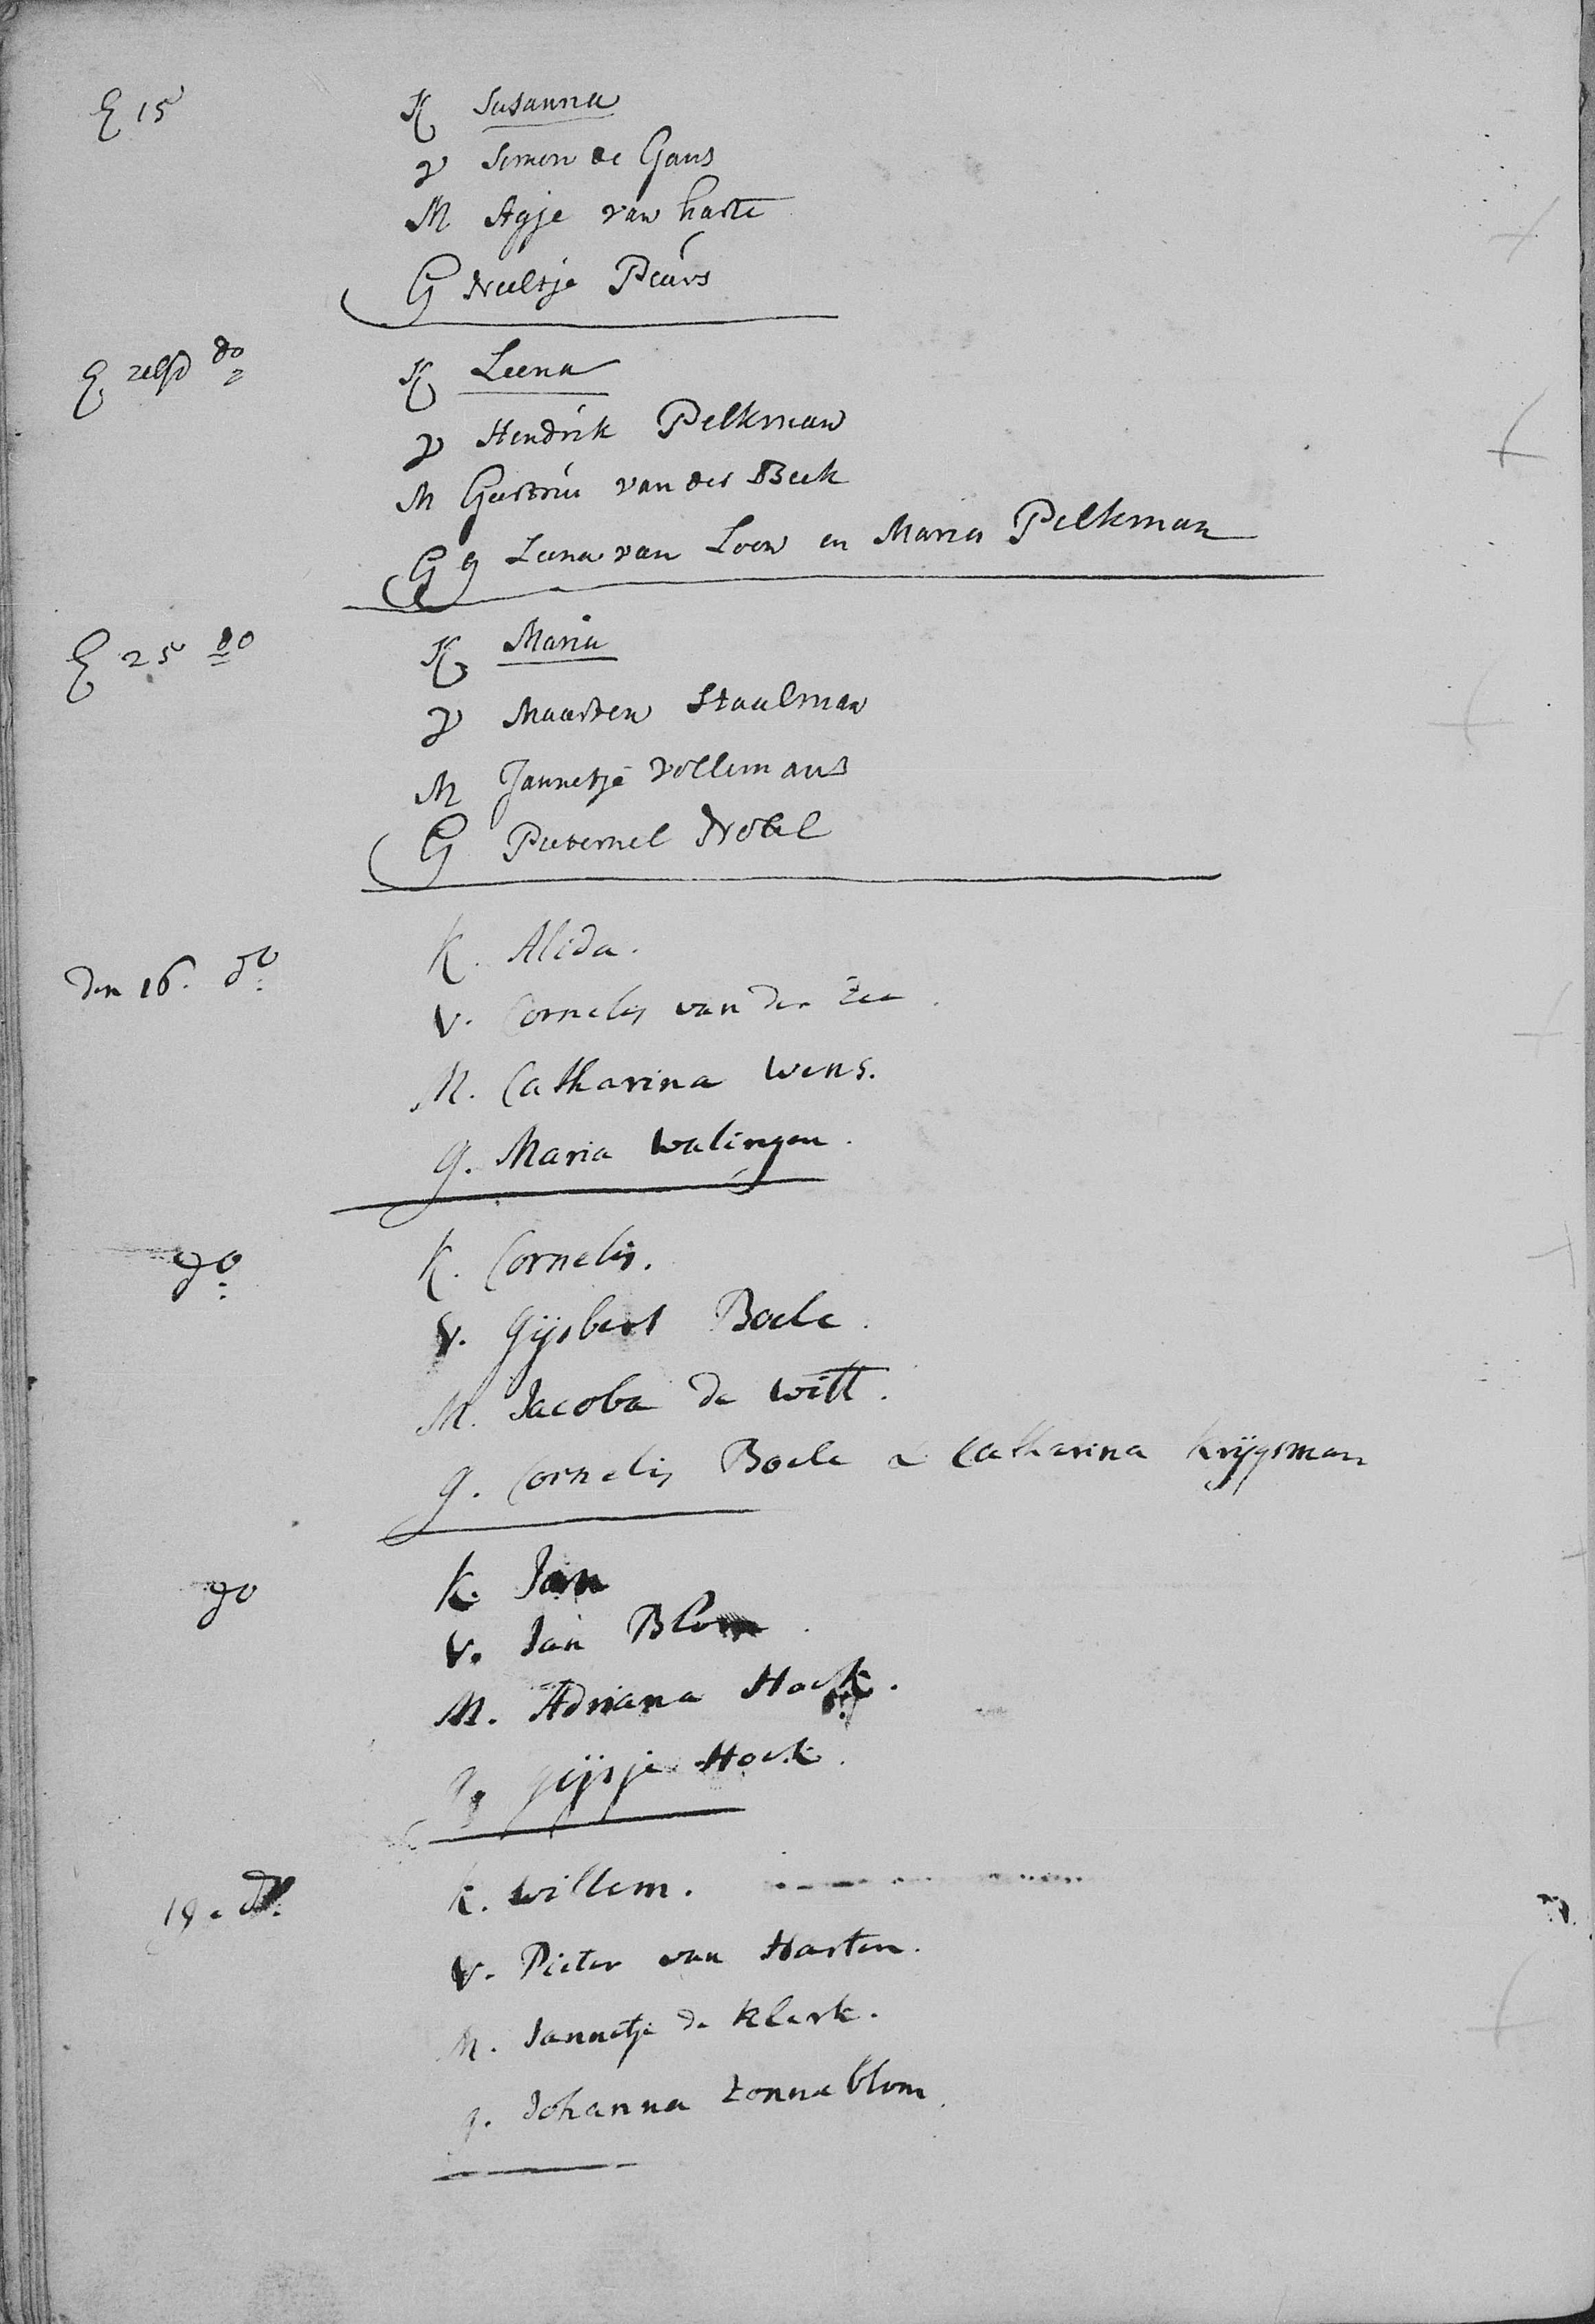 E 15 K Susanna
V Simon de Gans
M Agje van harte
G Neeltje Peürs
E zelfd do K Leena
V Hendrik Pelkman
M Geertrui van der Beek
G g Leena van Loon en Maria Pelkman
E 25 do K Maria
V Maarten Staalman
M Jannetje Vollemans
G Pieternel Nobel
den 16. do: K. Alida.
V. Cornelis van der Zee.
M. Catharina Wens.
g. Maria Walingen.
do: K. Cornelis.
V. Gijsbert Boele.
M. Jacoba de Witt.
g. Cornelis Boele & Catharina Krijgsman
do K. Jan
V. Jan Blom.
M. Adriana Hoek.
g gijsje Hoek.
19. do. K. Willem.
V. Pieter van Harten.
M. Jannetje de Klerk.
g. Johanna Zonneblom.